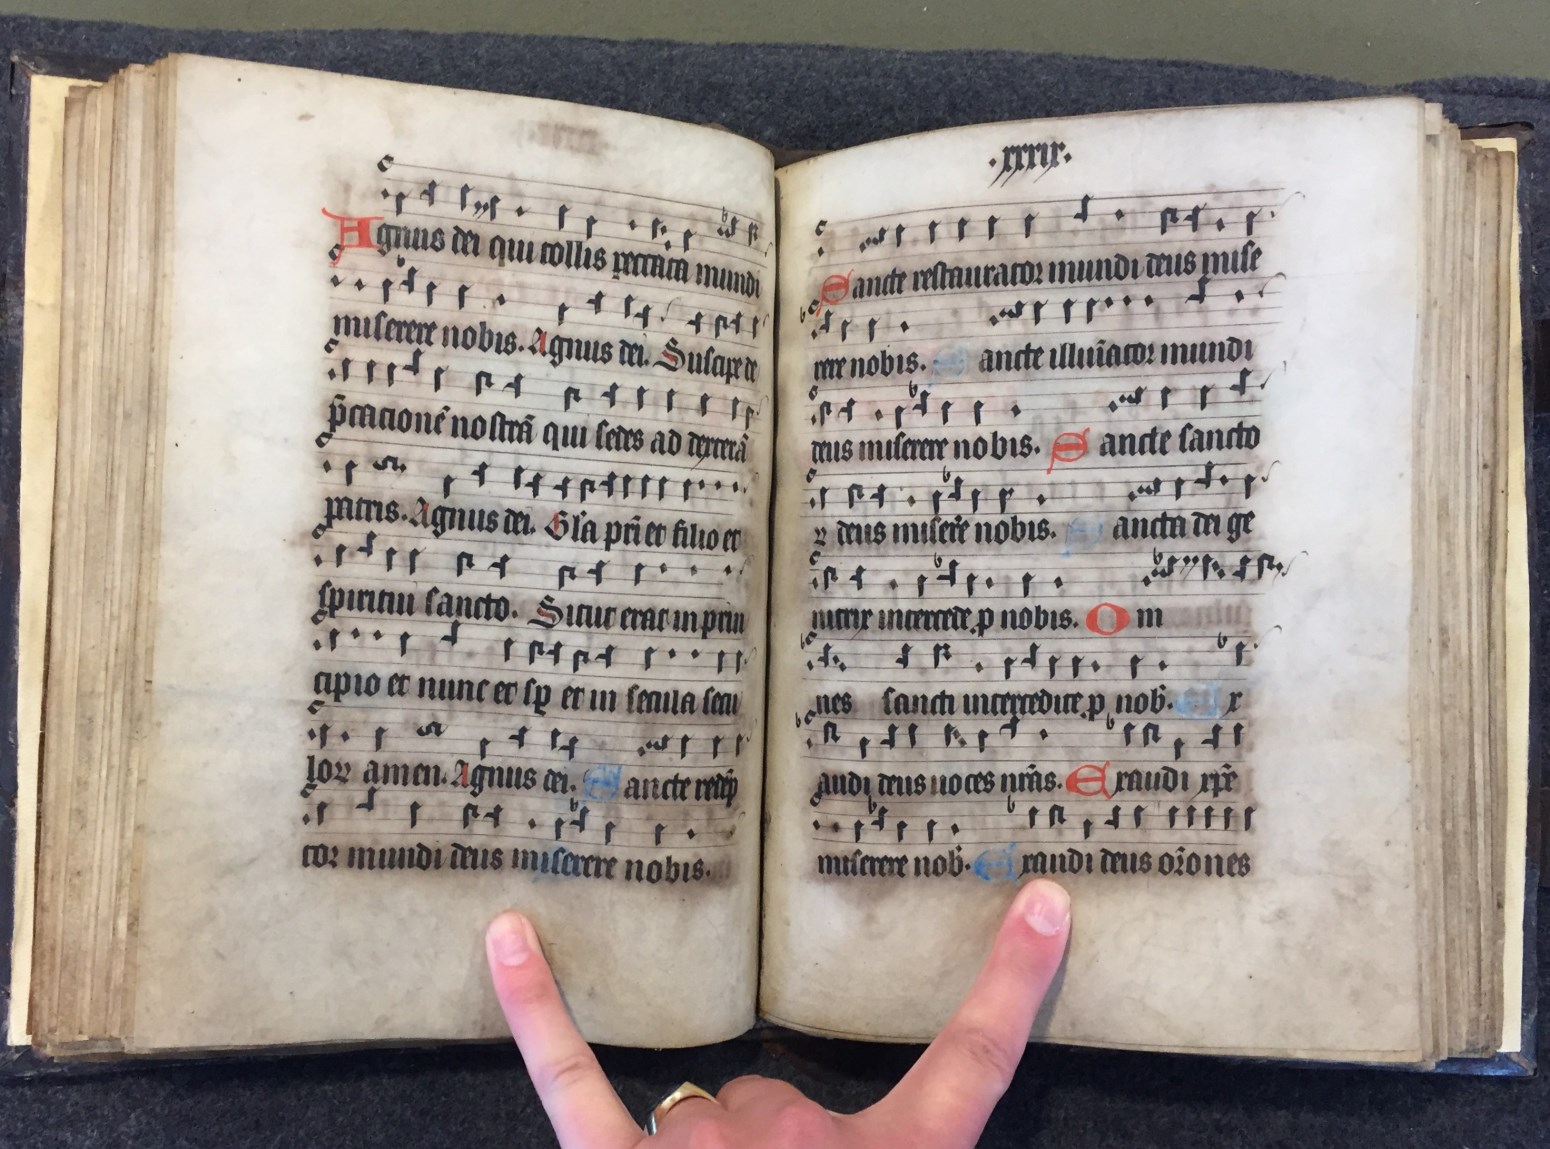 Agnus dei qui tollis peccata mundi
miserere nobis. Agnus dei. Suscipe de
p̄cacionē nostrā qui sedes ad dexterā
patris. Agnus dei. Gl̄a pr̄i et filio et
spiritui sancto. Sicut erat in prin
cipio et nunc et sꝑ et in secula secu
loꝝ amen. Agnus dei. Sancte redēp
tor mundi deus miserere nobis.
.xxxix.
Sancte restaurator mundi deus mise
rere nobis. Sancte illuīator mundi
deus miserere nobis. Sancte sancto
ꝝ deus miser̄e nobis. Sancta dei ge
nitrix intercede .p nobis. Om
nes sancti intercedite .p nob̄. Ex
audi deus uoces nr̄as. Exaudi xp̄e
miserere nob̄. Exaudi deus or̄ones